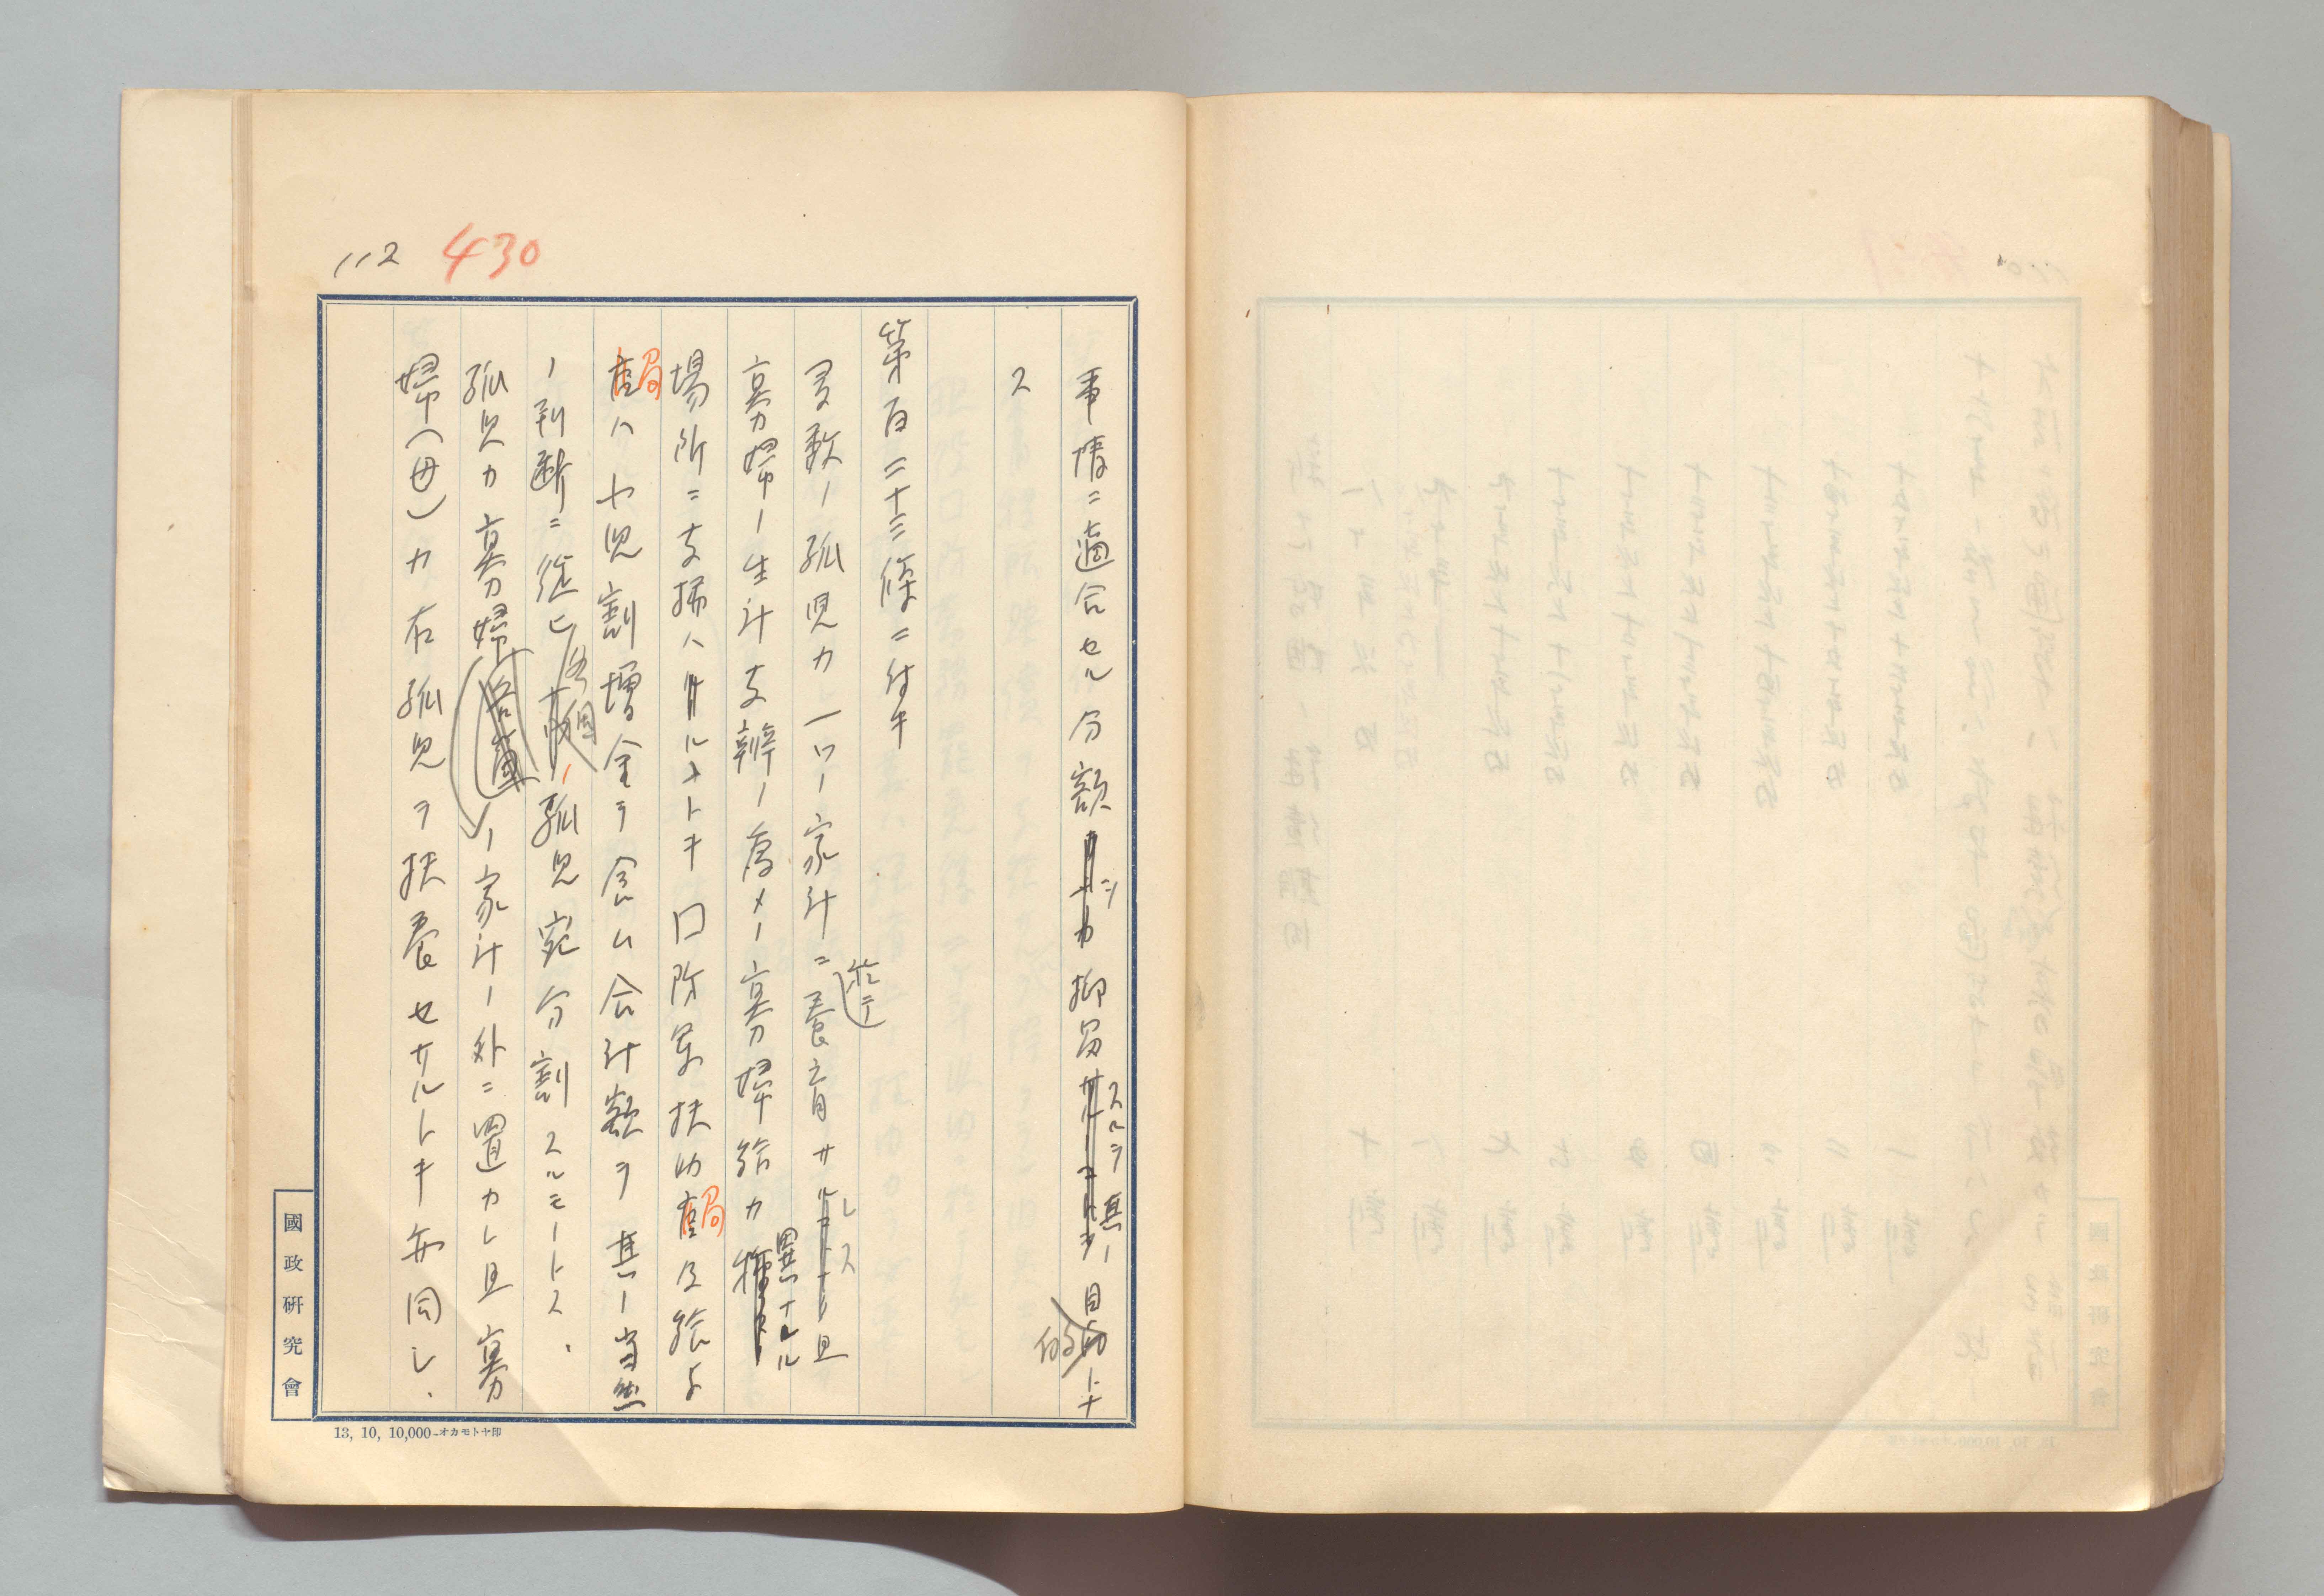 112 430
事情ニ適合セル分額ニシ抑留スルヲ其ノ目的トナ
ス
第百二十三條ニ付キ
多数ノ孤児カ一ツノ家計ニ於テ養育サレス且
寡婦ノ生計支辨ノ為メノ寡婦給カ異ナル
場所ニ支拂ハルルトキ口防軍扶助局及給与
局ハ幼児割増金ヲ含ム合計額ヲ其ノ当然
ノ判断ニ従ヒ各個ノ孤児宛分割スルモノトス、
孤児カ寡婦ノ家計ノ外ニ置カレ且寡
婦(母)カ右孤児ヲ扶養セサルトキ亦同シ、
國政研究會
13, 10, 10,000—オカモトヤ印